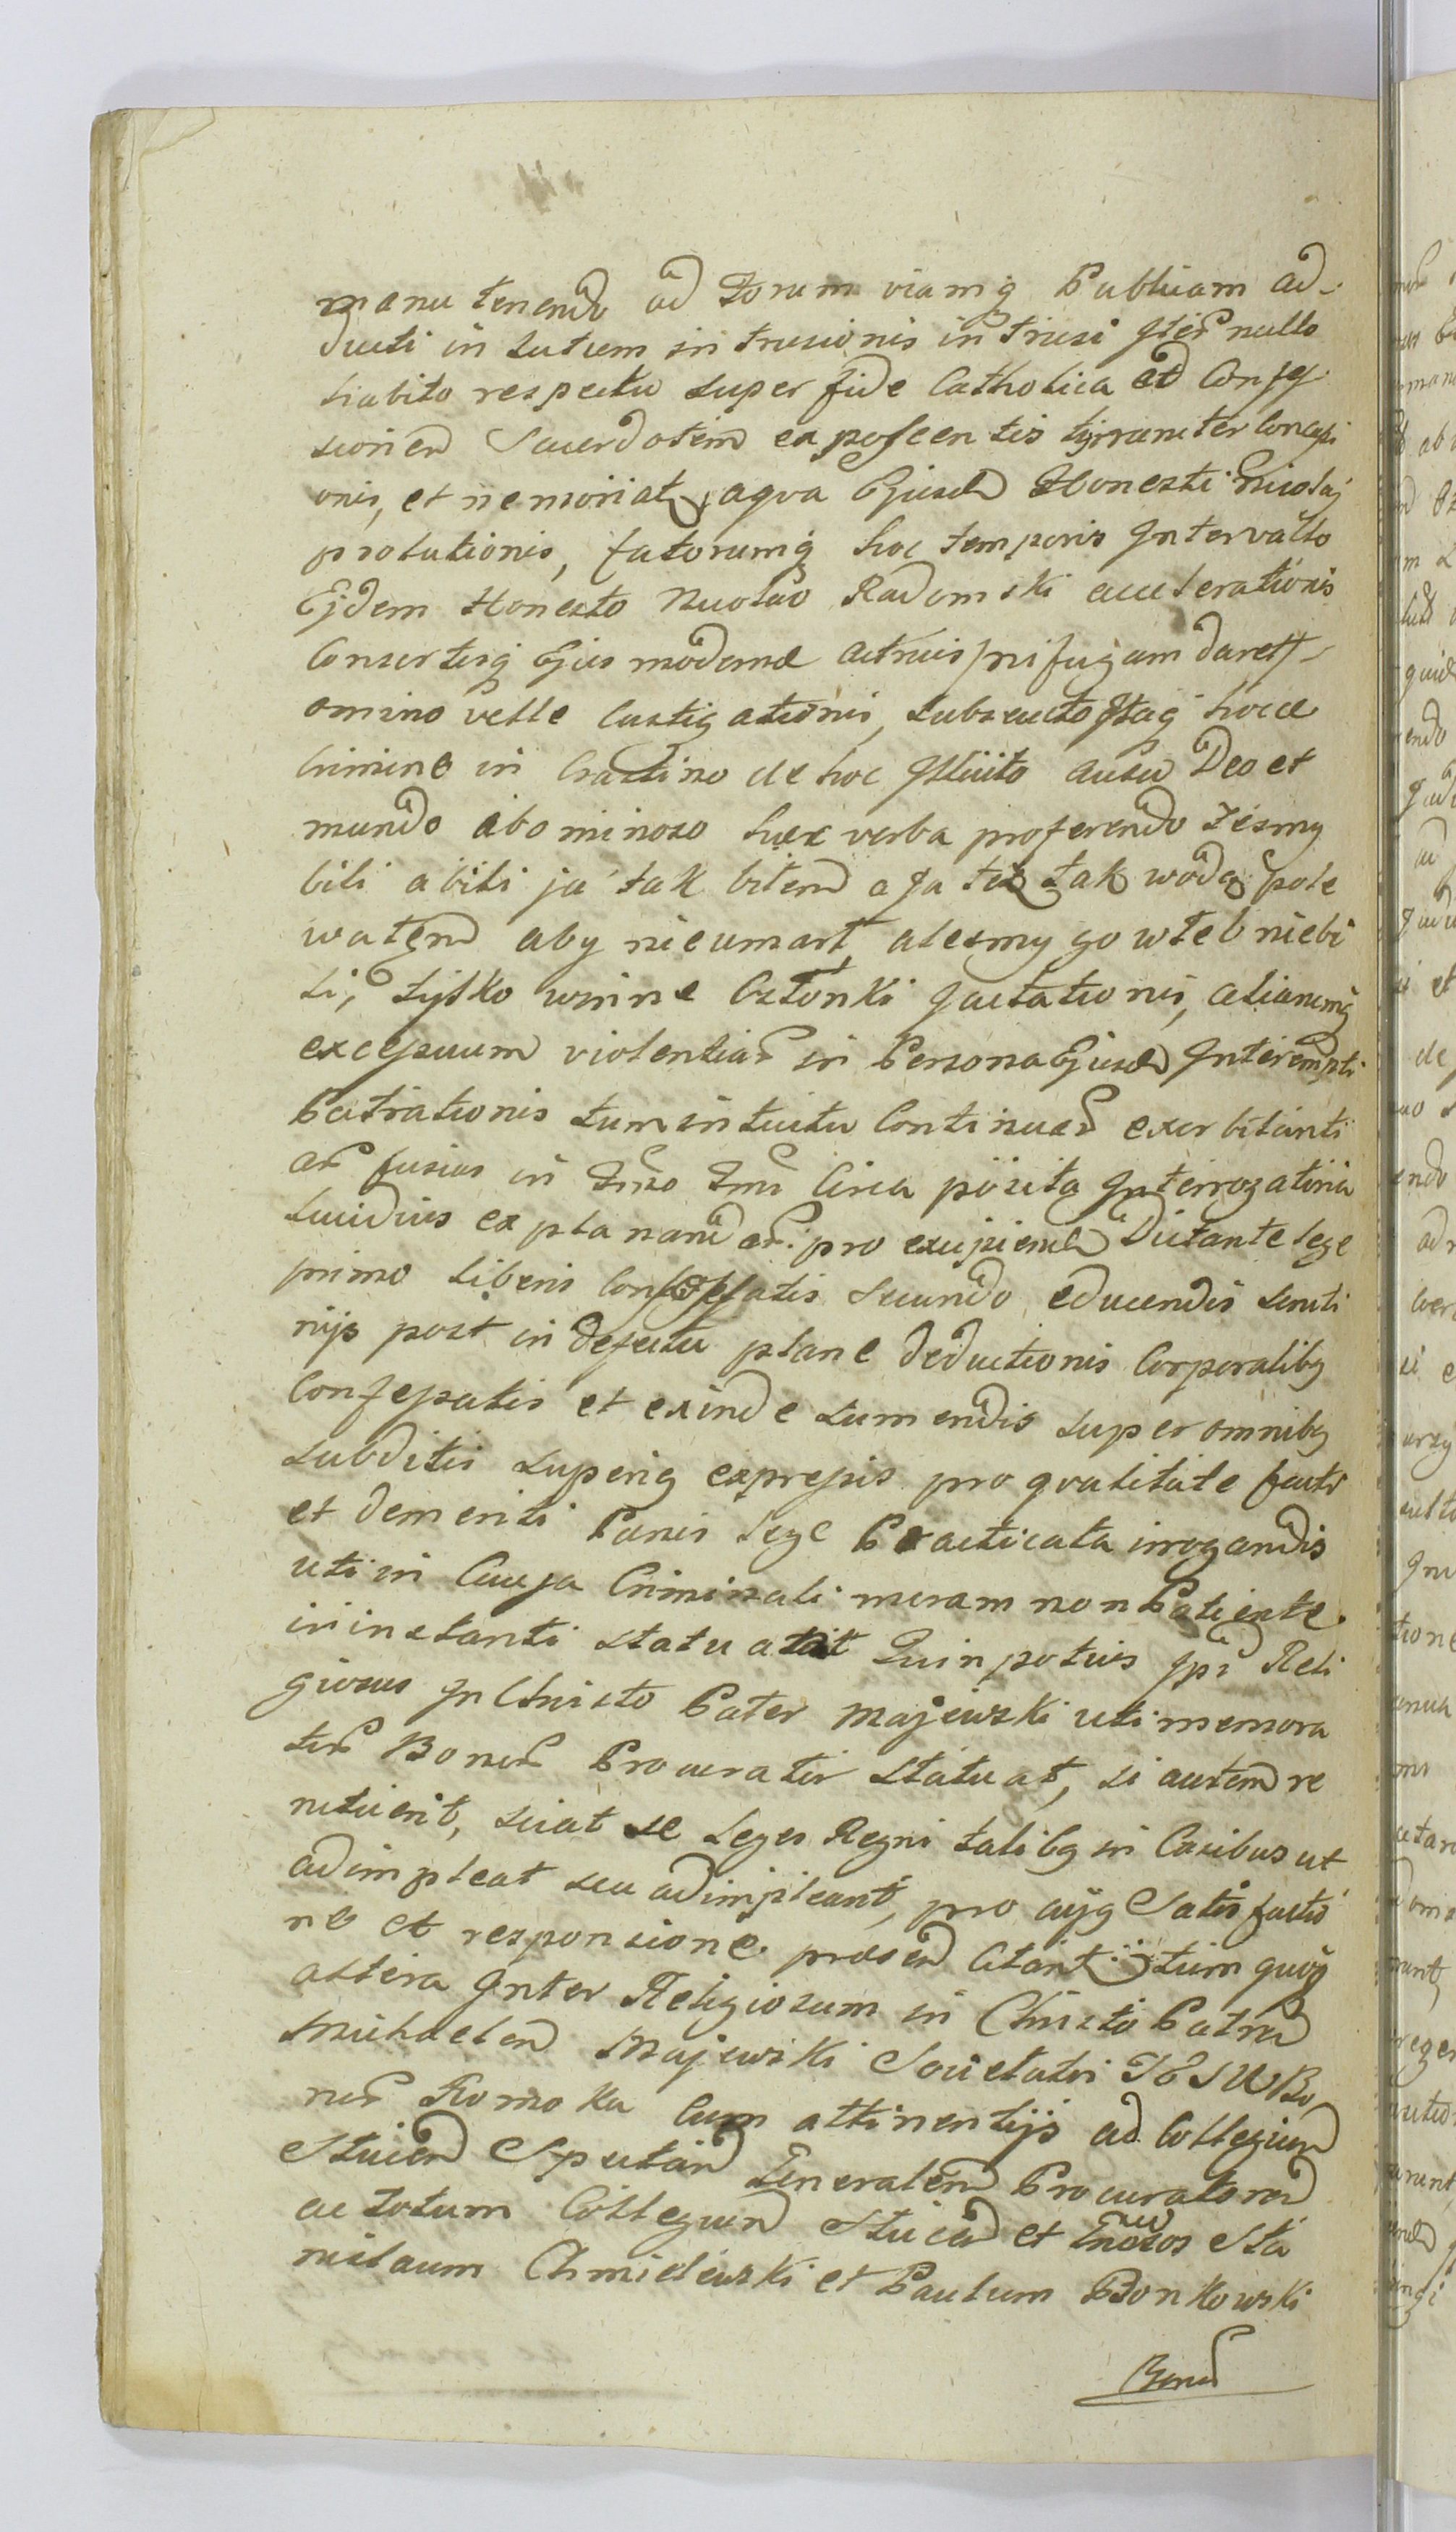 manu tenendo ad Forum viamq Publicam ad-
ducti in lutum in trusionis in trusi Iter nullo
habito respectu super fide Catholica et Confes
sionem Sacerdotem exposcentis tyranniter Concussi
onis, et ne moriat, aqva Ejusd Honesti Nicolaj
prolutionis, fatorumq hoc temporis Intervallo
Ejdem Honesto Nicolao Radomski accelerationis
Consortisq Ejus modernæ
omino velle Castigationis, subsecuto Itaq hocce
Crimine in Crastino de hoc Illicito ausu Deo et
mundo abominoso hæc verba proferendo Jesmy
bili a bili ja tak bilem a Ja też tak wodą pole
wałem aby nieumarł, alesmy go w łeb niebi
li, tylko winne Członki Jactationis, aliarumq
excessuum violentiar in Persona Ejusd Interempti
Patrationis tum intuitu Continuar exorbitanti
ar fusius in Fmo Fni Circa posita Interrogatiria
lucidius explanandar. pro excipiend Dictante lege
primo liberis Confessatis Secundo educendis Scruti
nijs post in defectu plane deductionis Corporalibq
Confessatis et exinde sumendis super omnibq
subditis superiq expressis pro qvalitate facti
et demeriti Pænis Lege Practicata irrogandis
uti in Causa Criminali moram non Patiente
in instanti statuat Quin potius Ipse Reli
giosus In Christo Pater Majewski uti memora
tor Bonor Procurator Statuat, si autem re
nuerit, sciat se Leges Regni talibq in Casibus ut
adimpleat seu adimpleant, pro cujq Satisfactio
ne et responsione præsen Citant tum quoq
altera Inter Religiosum in Christo Patrem
Michaelem Majewski Societatis JESU Bo
nor Komoka Cum attinentijs ad Collegium
Sluicen Spectan Generalem Procuratorem
ac totum Collegium Sluicen et Gnosos Sta
nislaum Chmielewski et Paulum Bonkowski
Bonor